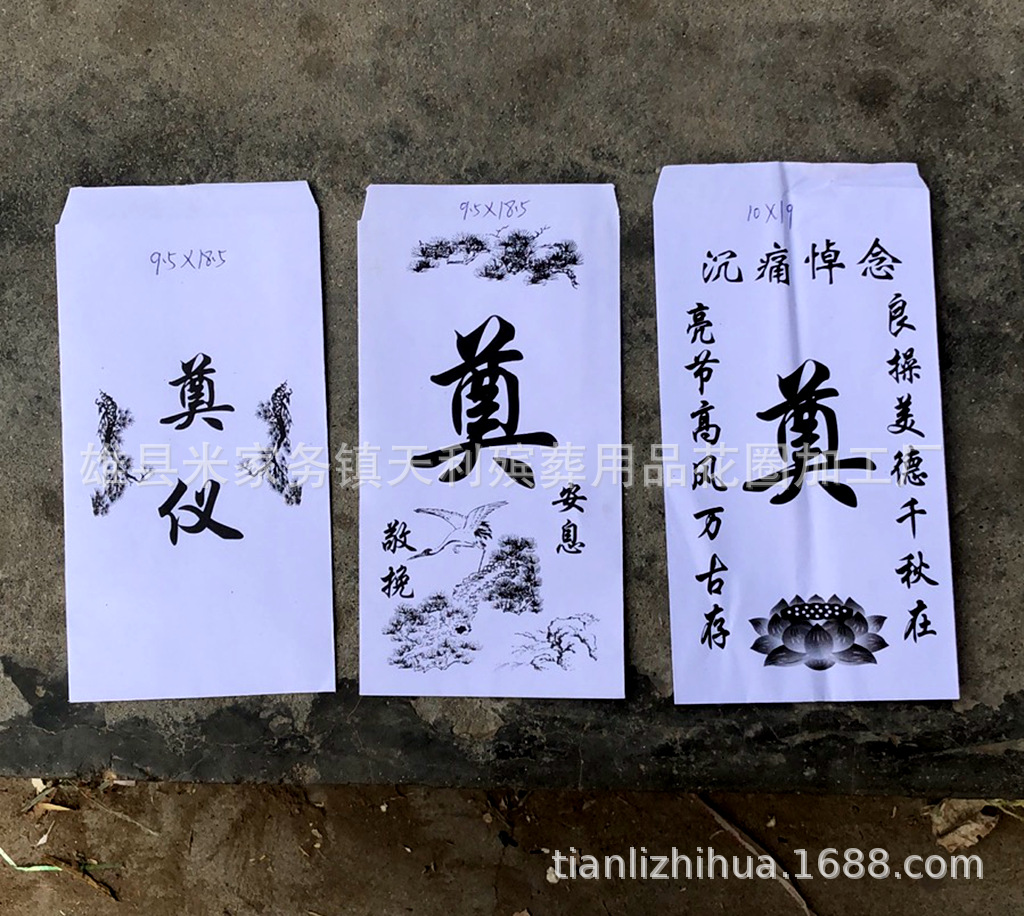 9.5X18.5
奠
仪
9.5X18.5
奠
安息
敬挽
10X19
沉痛悼念
良操美德千秋在
亮节高风万古存
奠
雄县米家务镇天利殡葬用品花圈加工厂
tianlizhihua.1688.com